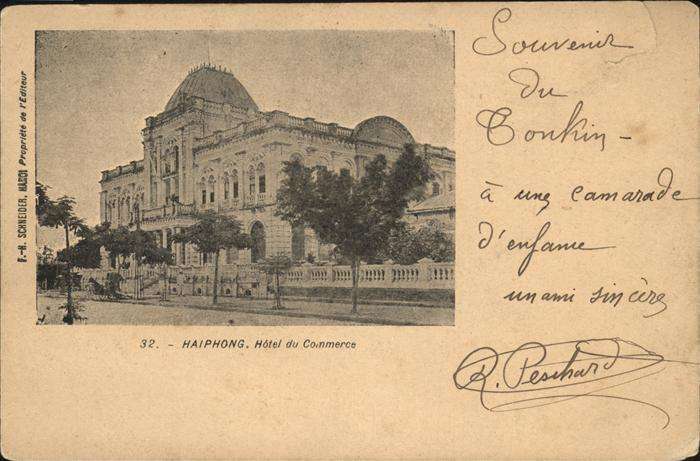 F.-H. SCHNEIDER, HANOI Propriété de l'Editeur
32. - HAIPHONG, Hôtel du Commerce
Souvenir
du
Tonkin -
à une camarade
d'enfance
un ami sincère
R. Peschard